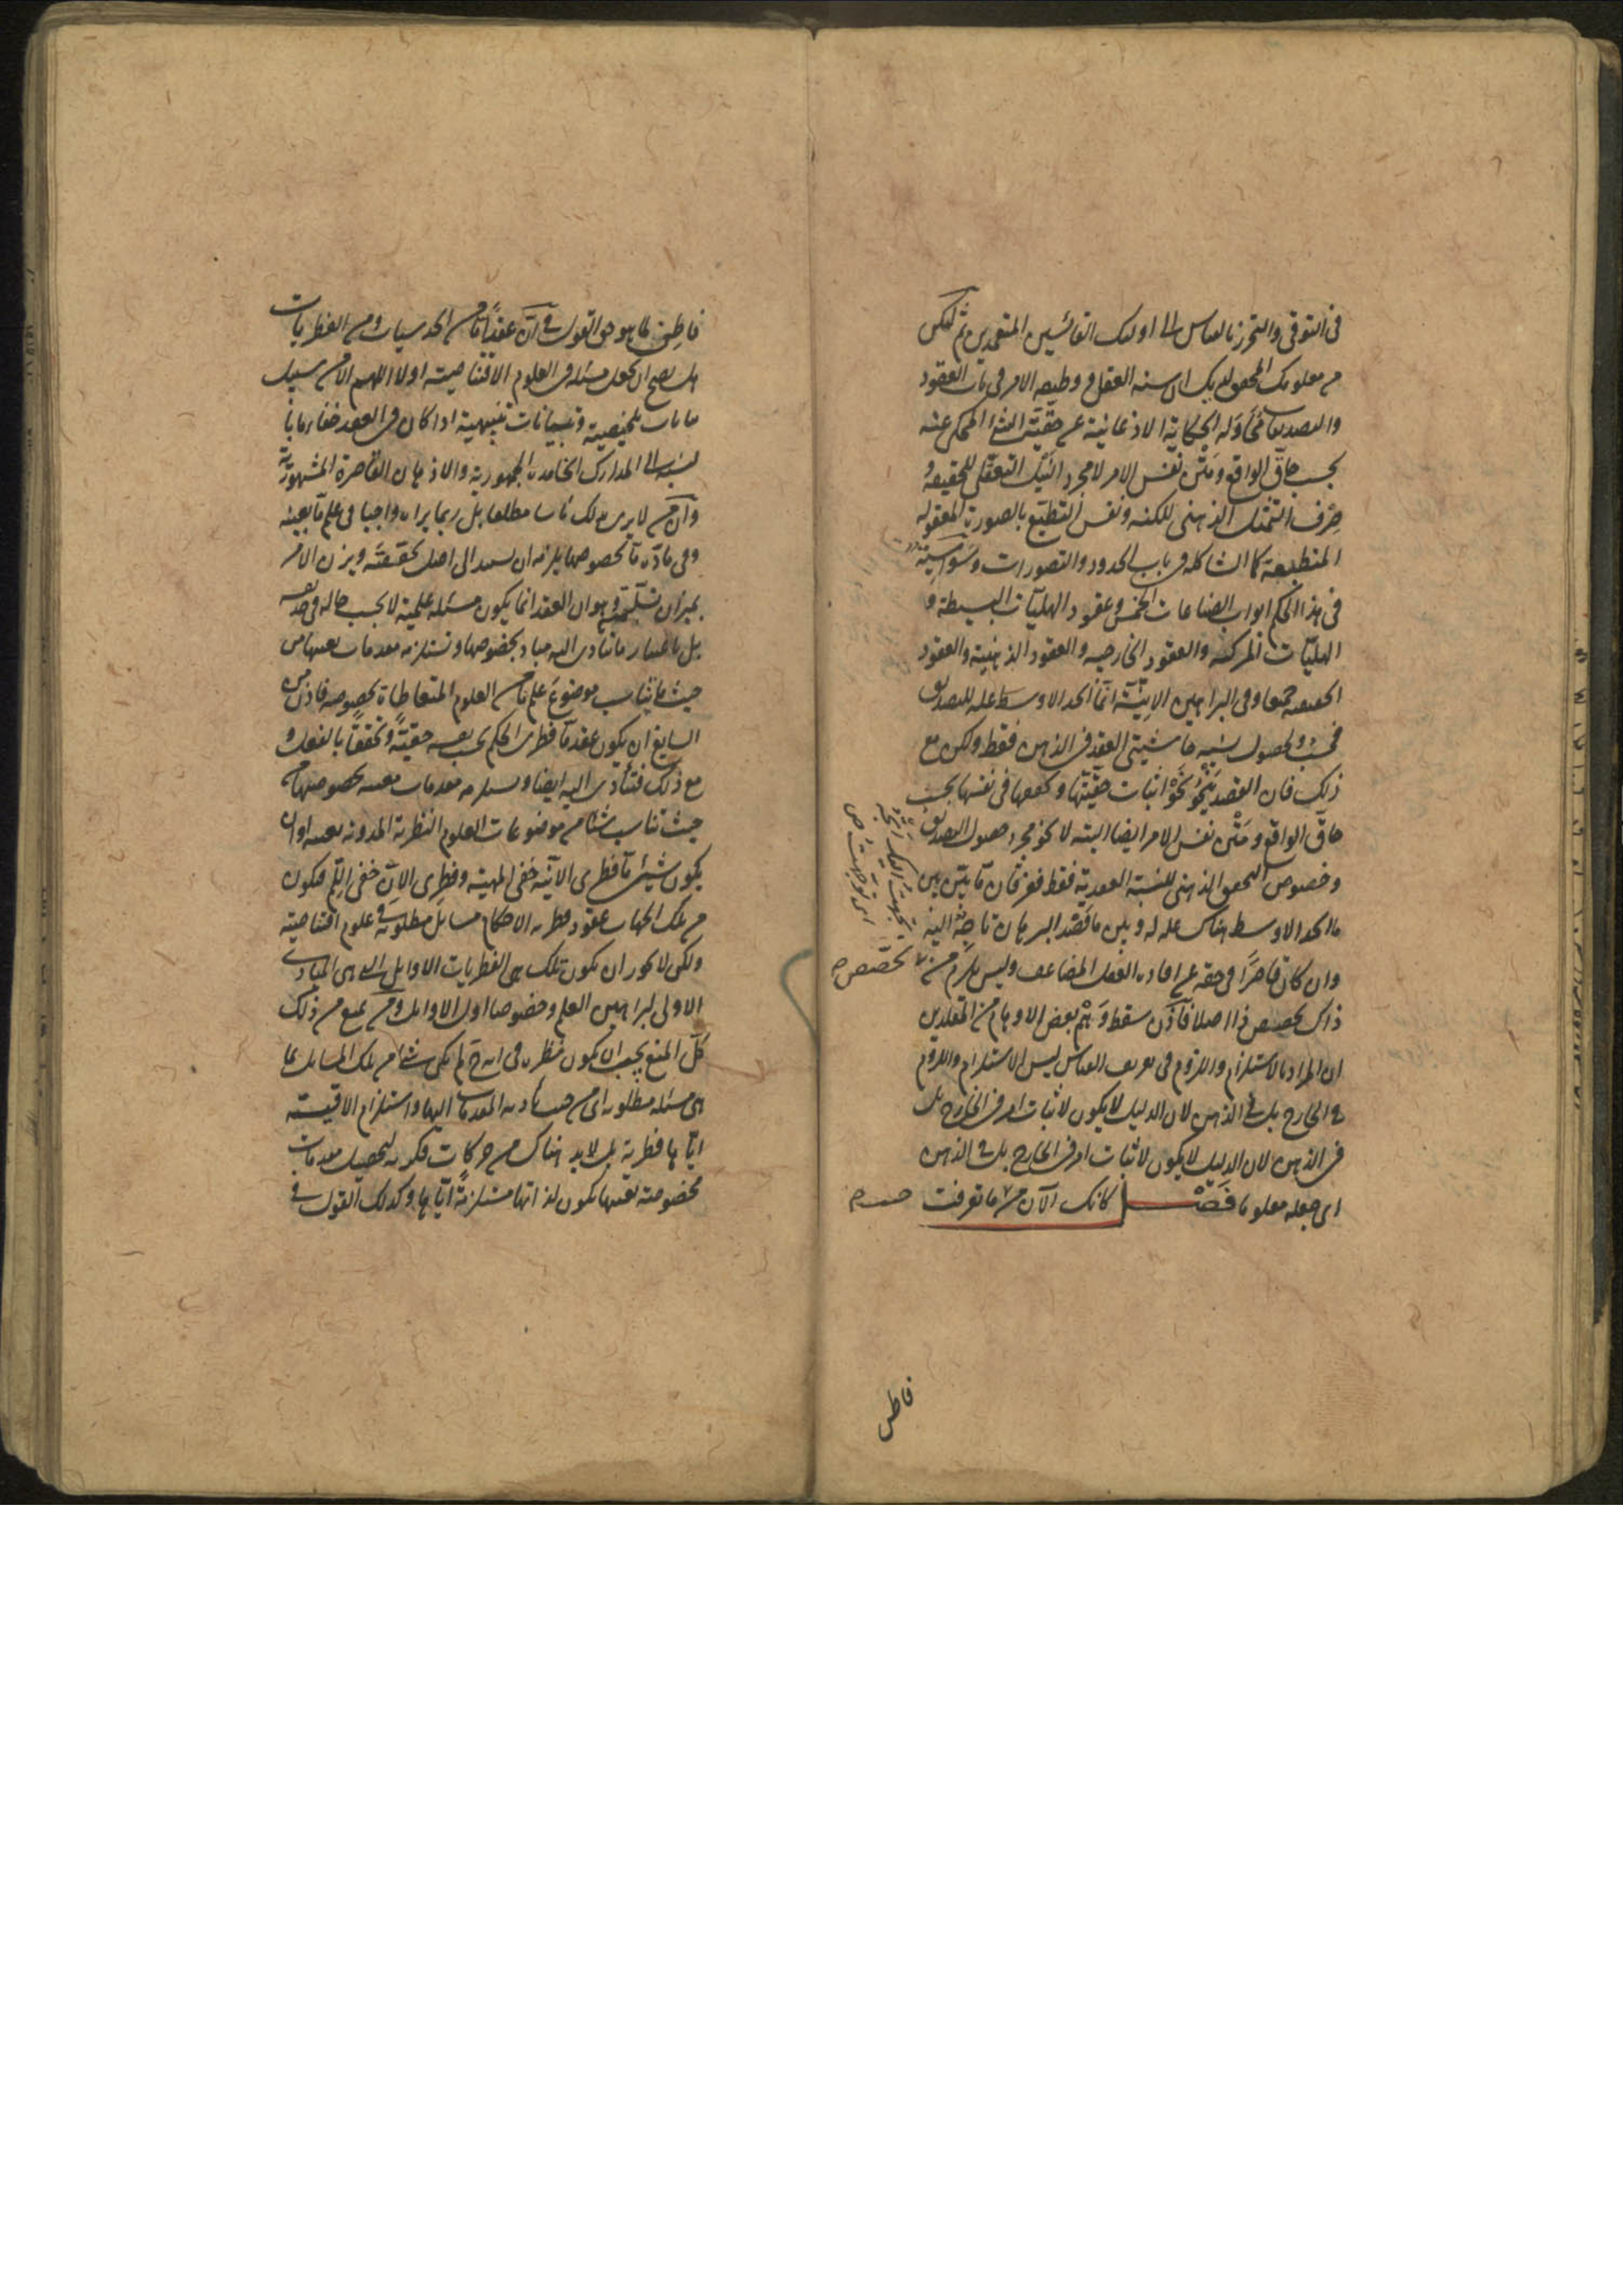 فى التوقى والتحرز بالقياس الى اولئك القائسين المتعمدين ثم ليكن
من معلومك المحقق لديك ان سنة العقل فى وطبيعة الامر فى باب العقود
والتصديقات الحكاية الاذعانية عن حقية الشئ المحكى عنه
بحسب حاق الواقع ومتن نفس الامر لا مجرد النيل التعقلى للحقيقة و
صرف التمثل الذهنى للكنه ونفس التطبع بالصورة المعقولة
المنطبعة كما الشاكلة فى باب الحدود والتصورات وسواسية
فى هذا الحكم ابواب الصناعات الخمس وعقود الهليات البسيطة و
الهليات المركبة والعقود الخارجية والعقود الذهنية والعقود
الحقيقية جميعا وفى البراهين الانية انما الحد الاوسط علة للتصديق
فحسب ولحصول نسبة حاشيتى العقد فى الذهن فقط ولكن مع
ذلك فان القصد ينحو نحو اثبات حقيتها وتحققها فى نفسها بحسب
حاق الواقع ومتن نفس الامر ايضا البتة لا نحو مجرد حصول التصديق
وخصوص التحقق الذهنى للنسبة العقدية فقط ففرقان ما بين بين
ما الحد الاوسط هناك علة له وبين ما قصد البرهان ناحٍ اليه
وان كان قاصرا فى حقه عن افادة العقل المضاعف وليس يلزم من
ذاك تخصيص ذا اصلا فاذن سقط وهم بعض الاوهام من المقلدين
ان المراد بالاستلزام واللزوم فى تعريف القياس ليس الاستلزام واللزوم
فى الخارج بل فى الذهن لان الدليل لا يكون لاثبات امر فى الخارج بل
فى الذهن لان الدليل لا يكون لاثبات امر فى الخارج بل فى الذهن
اى جعله معلوما فصل كانك الآن من ما تعرفت
تخصص
فاطن
فاطن لما هو حق القول فى ان عقدا ما من الحدسيات ومن الفطريات
هل يصح ان يجعل مسئلة فى العلوم الاقتناصية او لا اللهم الا من سبيل
بيانات تلخيصية وتبيانات تنبيهية اذا كان فى العقد خفاء ما
بالنسبة الى المدارك الخامدة الجمهورية والاذهان القاصرة المشهورية
وان من لا يرى بذلك باسا مطلقا بل ربما يراه واجبا فى علم ما بعينه
وفى مادة ما بخصوصها يلزمه ان يهتدى الى اصل تحققته ويزن الامر
بميزان نسلمه وهو ان العقد انما يكون مسئلة علمية لا بحسب حاله فى حد نفسه
بل باعتبار ما يتادى اليه مبادٍ بخصوصها وتستلزمه مقدمات بعينها من
حيث ما يناسب موضوع علم ما من العلوم المتعاطاة بخصوصه فاذن من
السايغ ان يكون عقد ما فطرى الحكم بحسب نفسه حقيةً وتحققاً بالفعل و
مع ذلك فتتأدى اليه ايضا وتستلزمه مقدمات معينة بخصوصها من
حيث تناسب شيئا من موضوعات العلوم النظرية المدونة بعينه او ان
يكون شئ ما فطرى الانية خفى المهية وفطرى الان خفى اللم فتكون
من تلك الجهات عقود فطرية الاحكام مسايل مطلوبة فى علوم اقتناصية
ولكن لا يجوز ان تكون تلك هى الفطريات الاوايل التى هى المبادى
الاولى لبراهين العلم وخصوصا اول الاوايل ومن يمنع من ذلك
كل المنع يجب ان يكون نظره فى انه ح لم يكن شئ من تلك المسايل بما
هى مسئلة مطلوبة اى من حيث تادية المقدمات اليها واستلزام الاقيسة
اياها فطرية بل لابد هناك من حركات فكرية لتحصيل مقدمات
مخصوصة بعينها تكون لذاتها مستلزمةً اياها وكذلك القول فى